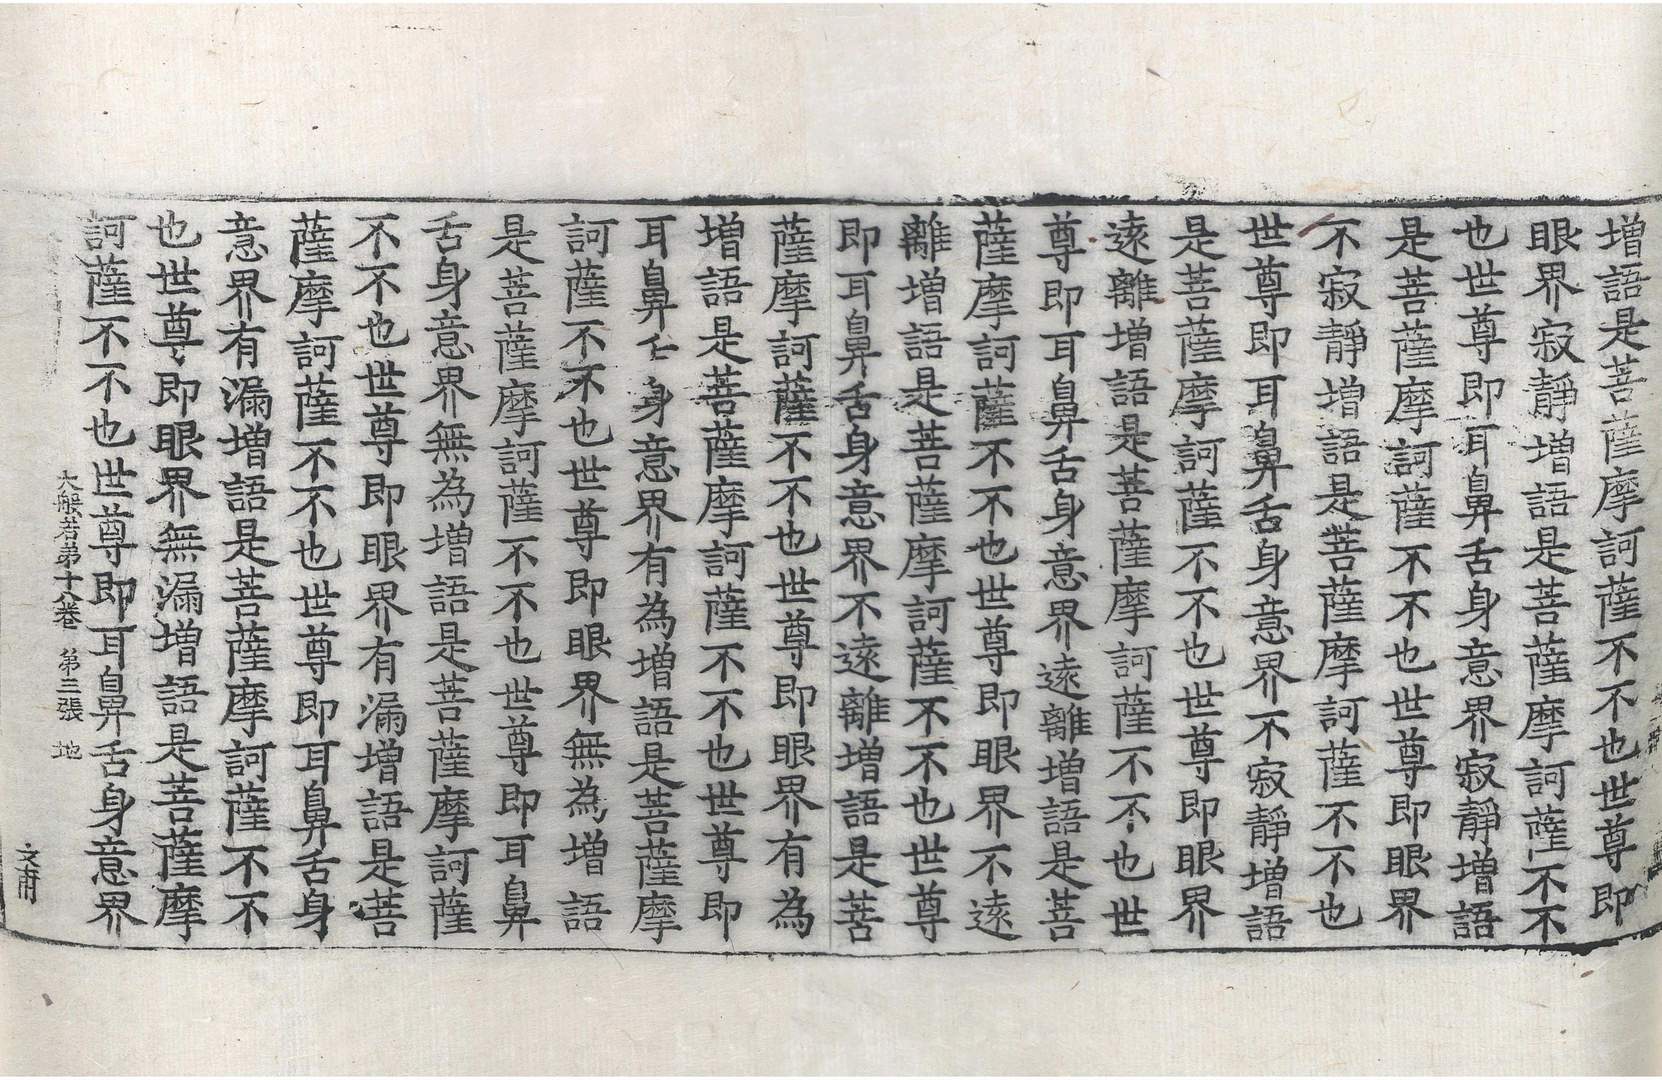 增語是菩薩摩訶薩不不也世尊即
眼界寂靜增語是菩薩摩訶薩不不
也世尊即耳鼻舌身意界寂靜增語
是菩薩摩訶薩不不也世尊即眼界
不寂靜增語是菩薩摩訶薩不不也
世尊即耳鼻舌身意界不寂靜增語
是菩薩摩訶薩不不也世尊即眼界
遠離增語是菩薩摩訶薩不不也世
尊即耳鼻舌身意界遠離增語是菩
薩摩訶薩不不也世尊即眼界不遠
離增語是菩薩摩訶薩不不也世尊
即耳鼻舌身意界不遠離增語是菩
薩摩訶薩不不也世尊即眼界有為
增語是菩薩摩訶薩不不也世尊即
耳鼻舌身意界有為增語是菩薩摩
訶薩不不也世尊即眼界無為增語
是菩薩摩訶薩不不也世尊即耳鼻
舌身意界無為增語是菩薩摩訶薩
不不也世尊即眼界有漏增語是菩
薩摩訶薩不不也世尊即耳鼻舌身
意界有漏增語是菩薩摩訶薩不不
也世尊即眼界無漏增語是菩薩摩
訶薩不不也世尊即耳鼻舌身意界
大般若第十八卷 第三張 地